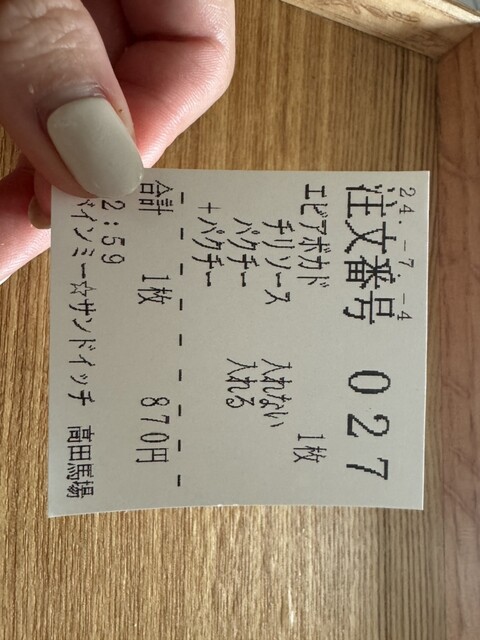 24.-7.-4
注文番号 027
エビアボカド 1枚
チリソース 入れない
パクチー 入れる
+パクチー
合計 1枚 870円
2:59
バインミー☆サンドイッチ 高田馬場